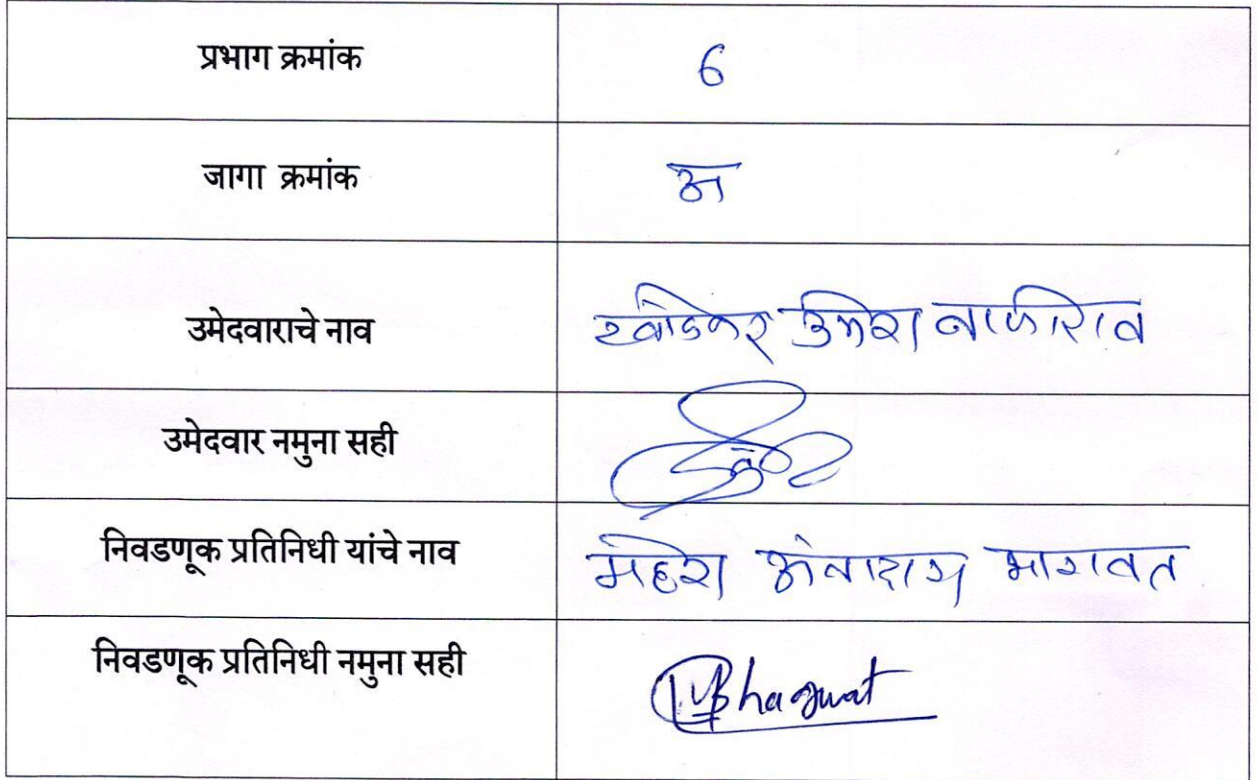 प्रभाग क्रमांक 6
जागा क्रमांक अ
उमेदवाराचे नाव उमेश
उमेदवार नमुना सही
निवडणूक प्रतिनिधी यांचे नाव महेश अंबादास भागवत
निवडणूक प्रतिनिधी नमुना सही Bhagwat